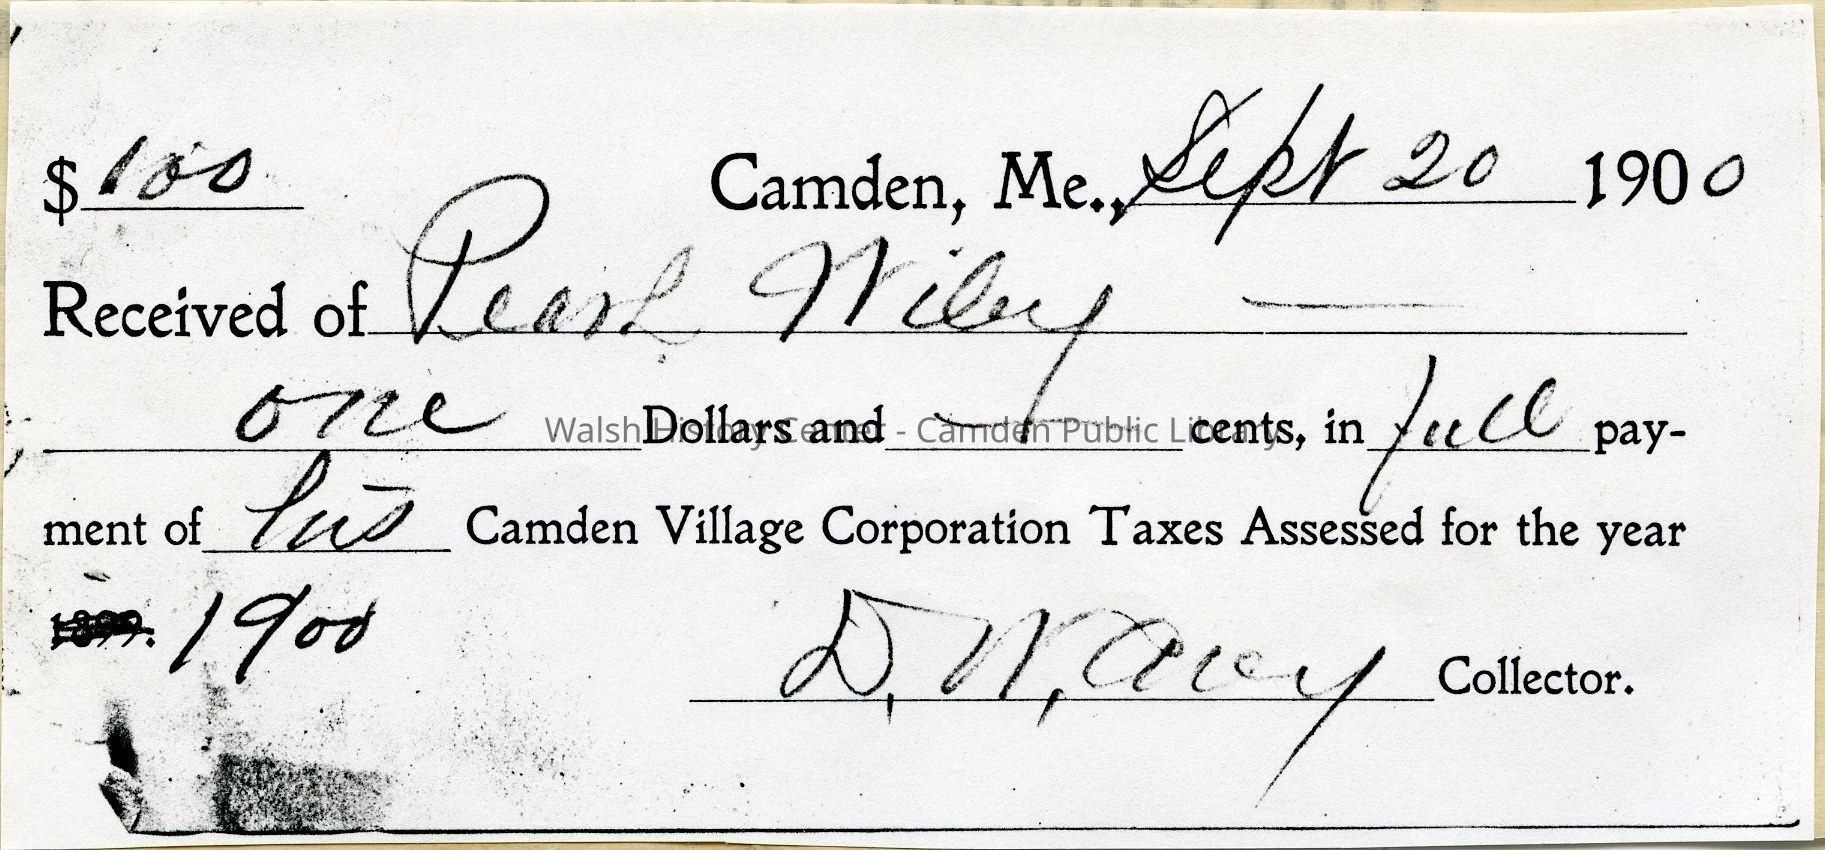 $ 100 Camden, Me., Sept 20 1900
Received of Pearl Wiley —
one Dollars and — cents, in full pay-
ment of his Camden Village Corporation Taxes Assessed for the year
1899. 1900
D. W. Avery Collector.
Walsh History Center - Camden Public Library